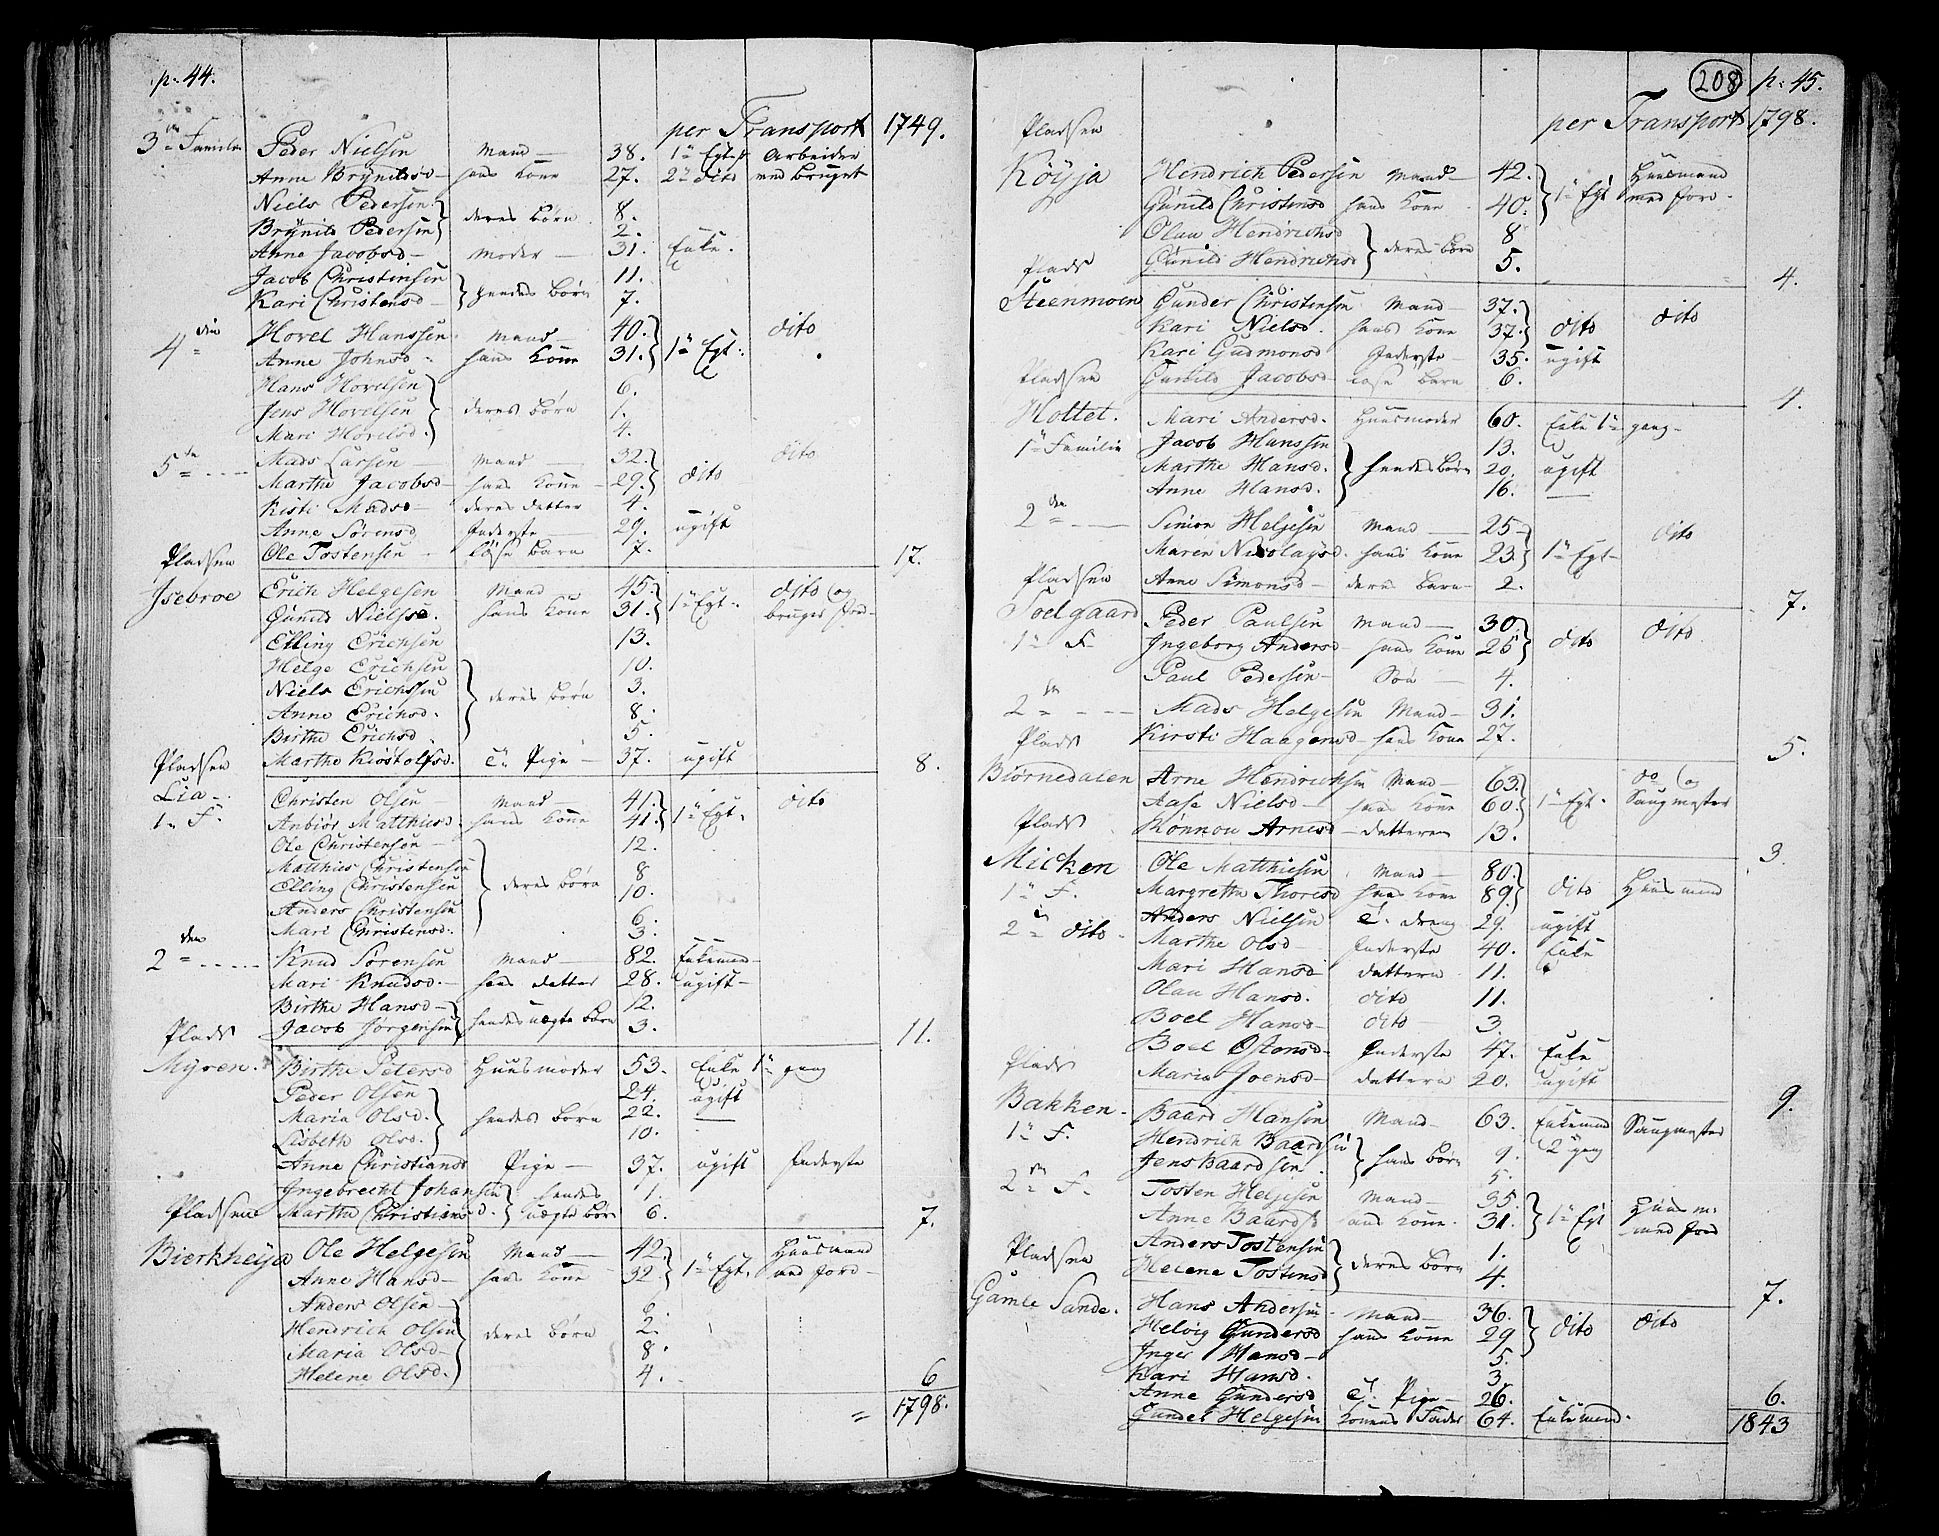 p. 44.
per Transport 1749.
3die Familie Peder Nielsen Mand 38. 1te Egtesk. Arbeider
Anne Brynildsd hans Kone 27. 2de dito ved bruget
Niels Pedersen 8.
Brynild Pedersen deres børn 2.
Anne Jacobsd Moder 31. Enke.
Jacob Christensen 11.
Kari Christensd hendes børn 7.
4de Hovel Hanssen Mand 40. dito
Anne Johnsd hans Kone 31. 1te Egt.
Hans Hovelsen 6.
Jens Hovelsen deres børn 1.
Mari Hovelsd. 4.
5te Mads Larsen Mand 32. dito
Marthe Jacobsd hans Kone 29. dito
Kisti Madsd deres datter 4.
Anne Sørensd Inderste 29. ugift
Pladsen Ole Tostensen løse barn 7. 17.
Isebroe Erich Helgesen Mand 45. dito og
Gunild Nielsd. hans Kone 31. 1te Egt. bruger Jord
Elling Erichsen 13.
Helge Erichsen 10.
Niels Erichsen deres børn 3.
Anne Erichsd. 8.
Birthe Erichsd. 5.
Pladsen Marthe Kiøstolfsd. T. Pige 37. ugift 8.
Lia
1te F. Christen Olsen Mand 41. dito
Anbiør Matthisd. hans Kone 41. 1te Egt.
Ole Christensen 12.
Matthies Christensen 8
Elling Christensen deres børn 10.
Anders Christensen 6.
Mari Christensd. 3.
2den Knud Sørensen Mand 82. Enkemand
Mari Knudsd. hans datter 28. ugift
Birthe Hansd 12.
Plads Jacob Jørgensen hendes uægte børn 3. 11.
Myren. Birthe Petersd Huusmoder 53. Enke 1te gang
Peder Olsen 24. ugift
Maria Olsd. hendes børn 22.
Lisbeth Olsd. 10.
Anne Christiansd Pige 37. ugift Inderste
Ingebrecht Johansen hendes 1.
Pladsen Marthe Christiansd. uægte børn 6. 7.
Bierkheja Ole Helgesen Mand 42. Huusmand
Anne Hansd hans Kone 32. 1te Egt. med Jord
Anders Olsen 6.
Hendrich Olsen deres børn 2.
Maria Olsd 8.
Helene Olsd. 4. 6
1798.
208 p. 45.
Pladsen per Transport 1798.
Køyja Hendrich Pedersen Mand 42. Huusmand
Gunild Christensd hans Kone 40. 1te Egt med Jord.
Olau Hendrichsd 8
Plads Gunild Hendrichsd deres børn 5. 4.
Steenmoen Gunder Christensen Mand 37. dito
Kari Nielsd. hans Kone 37. dito
Kari Gudmonsd Inderste 35. ugift
Pladsen Gunild Jacobsd løse barn 6. 4.
Holtet. Mari Andersd. Huusmoder 60. Enke 1te gang
1te Familie Jacob Hanssen 13.
Marthe Hansd. hendes børn 20. ugift
Anne Hansd. 16.
2den Simon Helgesen Mand 25 dito
Maren Nicolaysd. hans Kone 23. 1te Egt
Pladsen Anne Simonsd deres barn 2. 7.
Toelgaard Peder Paulsen Mand 30 dito
1te F. Ingeborg Andersd hans Kone 25 dito
Paul Pedersen Søn 4.
2den Mads Helgesen Mand 31.
Plads Kirsti Haagensd hans Kone 27. 5.
Biørnedalen Arne Hendrichsen Mand 63. do og
Aase Nielsd hans Kone 60. 1te Egt. Saugmester
Plads Rønnou Arnesd datteren 13. 3.
Micken Ole Matthiesen Mand 80. Huusmand
1te F. Margrethe Thoresd hans Kone 89. dito
Anders Nielsen T. dreng 29. ugift
2de dito Marthe Olsd Inderste 40. Enke
Mari Hansd datteren 11.
Olau Hansd. dito 11.
Boel Hansd dito 3.
Boel Ostensd. Inderste 47. Enke
Plads Maria Joensd datteren 20. ugift 9.
Bakken Baard Hansen Mand 63. Enkemand Saugmester
1te F. Hendrich Baardsen 9. 2 gang
Jens Baardsen hans børn 5.
2den F. Tosten Helgesen Mand 35. Huusm.
Anne Baardsd hans Kone 31. 1te Egt med Jord
Anders Tostensen 1.
Pladsen Helene Tostensd deres børn 4. 7.
Gamle Sande. Hans Andersen Mand 36. dito
Helvig Gundersd hans Kone 29 dito
Inger Hansd 5.
Kari Hansd. 3
Anne Gundersd T. Pige 26.
Gunder Helgesen Konens Fader 64. Enkemand. 6.
1843